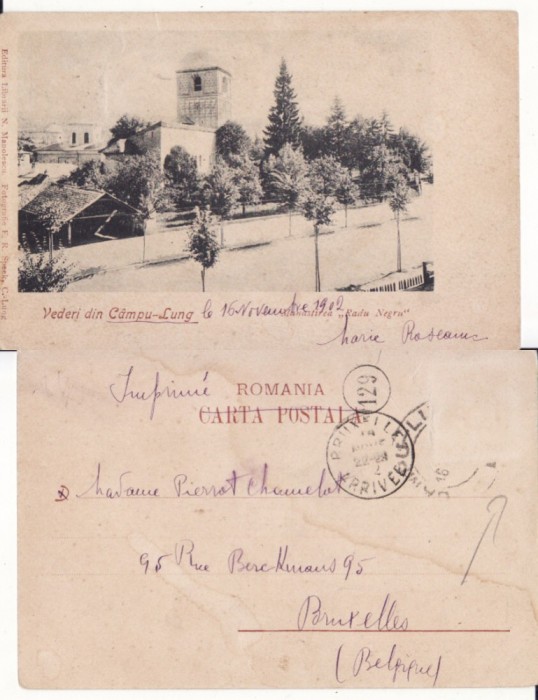 Editura Librarii N. Manolescu. Fotografie F. R.
Vederi din Câmpu-Lung le 16 Novembre 1902 "Radu Negru"
Imprimé
ROMANIA
CARTA POSTALA
129
BRUXELLES
ARRIVEE
Madame Pierrot Chamelot
95 Rue Berckmans 95
Bruxelles
(Belgique)